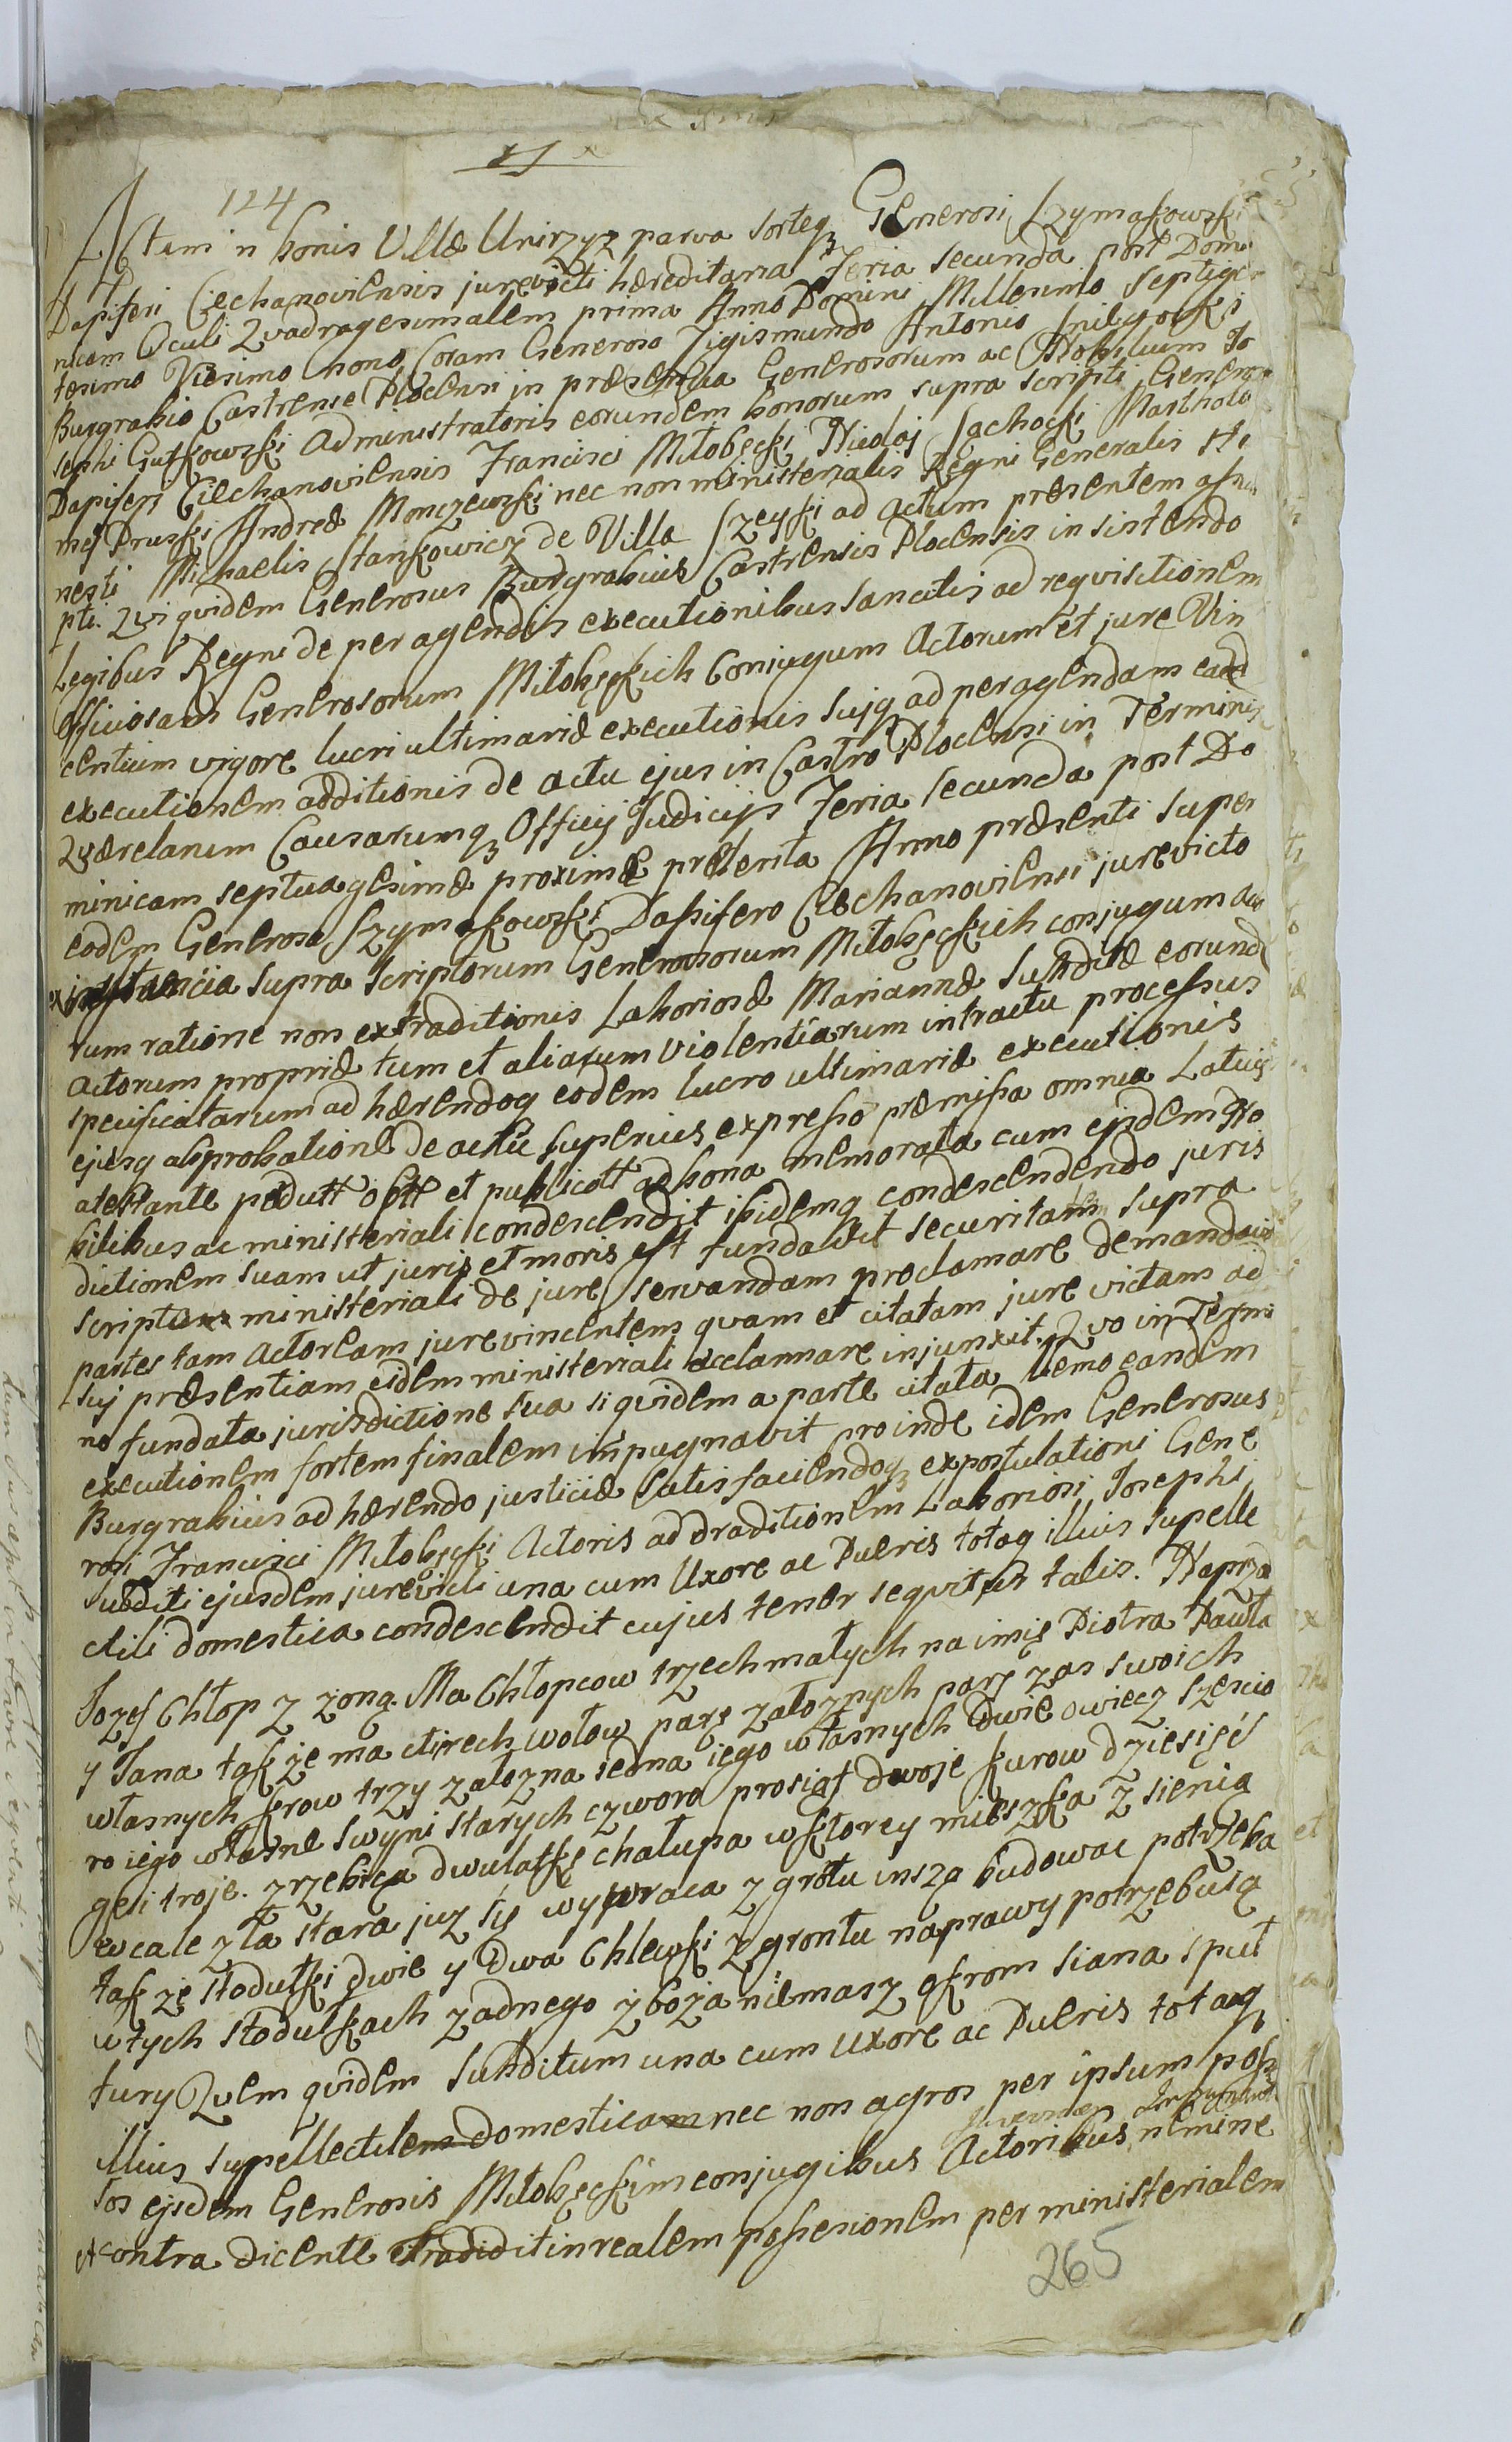 124
Actum in bonis Villæ Unirzyz parva sorteq Generosi Szymakowski
Dapiferi Ciechanoviensis jurevicti hæreditaria Feria secunda post Domi
nicam Oculi Quadragesimalem prima Anno Domini Millesimo Septigen
tesimo Vicesimo nono, Coram Generoso Zigismundo Antonio
Burgrabio Castrense Plocensi in præsentia Generosorum ac Nobilium Jo
sephi Gutkowski Administratoris eorundem bonorum supra scripti Generosi
Dapiferi Ciechanoviensis Francisci Miłobęcki Nicolaj Sachocki Bartholo
mej Pruski Andreæ Monczewski nec non ministerialis Regni Generalis Ho
nesti Michaelis Stankowicz de Villa Szeyki ad actum præsentem assum
pti. Qui quidem Generosus Burgrabius Castrensis Plocensis insistendo
Legibus Regni de peragendis executionibus sancitis ad requisitionem
Officiosam Generosorum Miłobęckich Coniugum Actorum et jure Vin
centium vigore lucri ultimariæ executionis sujq ad peragendam eand
executionem additionis de actu ejus in Castro Plocensi in Terminis
Quærelarum Causarumq Officij Judicijs Feria secunda post Do
minicam septuagesimæ proxime præterita Anno præsenti super
eodem Generoso Szymakowski Dapifero Ciechanoviensi jurevicto
ex instancia supra scriptorum Generosorum Miłobęckich conjugum acto
rum ratione non extraditionis Laboriosæ Mariannæ subditæ eorund
actorum propriæ tum et aliarum violentiarum intractu processus
specificatarum ad hærendoq eodem lucro ultimariæ executionis
ejusq approbatione de actu superius expresso præmissa omnia Latius
atestante et publicatt ad bona memorata cum ejsdem No
bilibus ac ministeriali condescendit ibidemq condescendendo juris
dictionem suam ut juris et moris est fundavit securitatem supra
scripto ministeriali de jure servandam proclamare demandavit
partes tam actoream jurevincentem quam et citatam jure victam ad
suj præsentiam eidem ministeriali acclamare injunxit. Quo in Termi
no fundata jurisdictione sua siquidem a parte citata nemo eandem
executionem fortem finalem impugnavit proinde idem Generosus
Burgrabius ad hærendo justiciæ satisfaciendoq expostulationi Gene
rosi Francisci Miłobęcki Actoris ad traditionem Laboriosi Josephi
subditi ejusdem jurevicti una cum Uxore ac Pueris totaq illius supelle
ctili domestica condescendit cujus tenor sequitur talis. Naprzod
Jozef Chłop z zoną. Ma Chłopcow trzech małych na imię Piotra Pawła
y Jana tak że ma cztrech wołow parę załoznych parę zas swoich
własnych krow trzy załozna jedna iego własnych dwie owiecz szescio
ro iego własne swyni starych czworo prosiąt dwoje kurow dziesięć
gesi troje. zrzebica dwulatkę chałupa wktorey mieszka z sienią
wcale zła stara juz się wywraca z grotu insza budowac potrzeba
tak ze stodułki dwie y dwa Chlewki z grontu naprawy potrzebuią
wtych stodułkach zadnego zboza niemasz okrom siana sput
fury Quem quidem subditum una cum Uxore ac Pueris totaq
illius supellectilem domesticam nec non agros per ipsum posse
sos ejsdem Generosis Miłobęckim conjugibus Actoribus nemine
contra dicente tradidit in realem possesionem per ministerialem
265